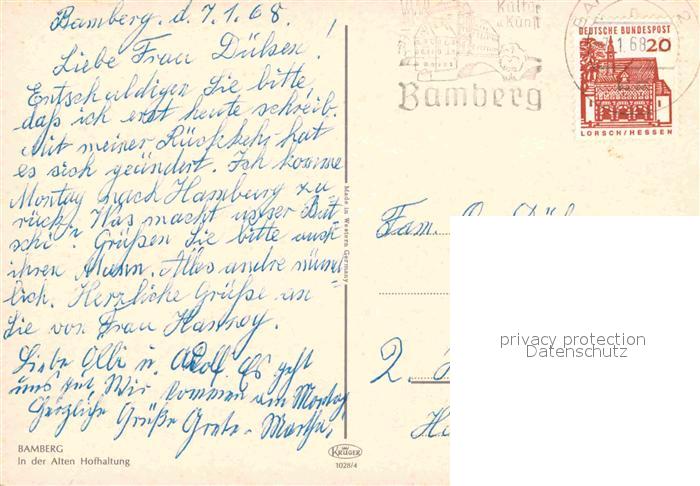 Bamberg. d. 7.1.68.
Liebe Frau Dülsen!
Entschuldigen Sie bitte,
daß ich erst heute schreib.
Mit meiner Rückkehr hat
es sich geändert. Ich komme
Montag nach Hamburg zu
rück. Was macht unser But
schi? Grüßen Sie bitte auch
ihren Mann. Alles andre münd
lich. Herzliche Grüße an
Sie von Frau Hannoy.
Liebe Olli u. Adolf. Es geht
uns gut. Wir kommen am Montag
Herzliche Grüße Grete-Martha.
BAMBERG
In der Alten Hofhaltung
Made in Western Germany
KRÜGER
1028/4
Kultur
u Kunst
Bamberg
7.1.68
DEUTSCHE BUNDESPOST
20
LORSCH/HESSEN
Fam.
privacy protection
Datenschutz
2.